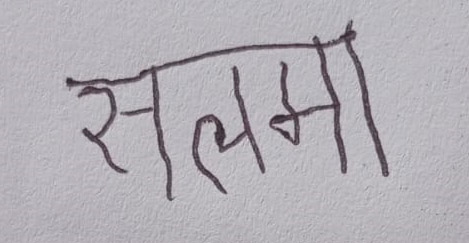 सलमा